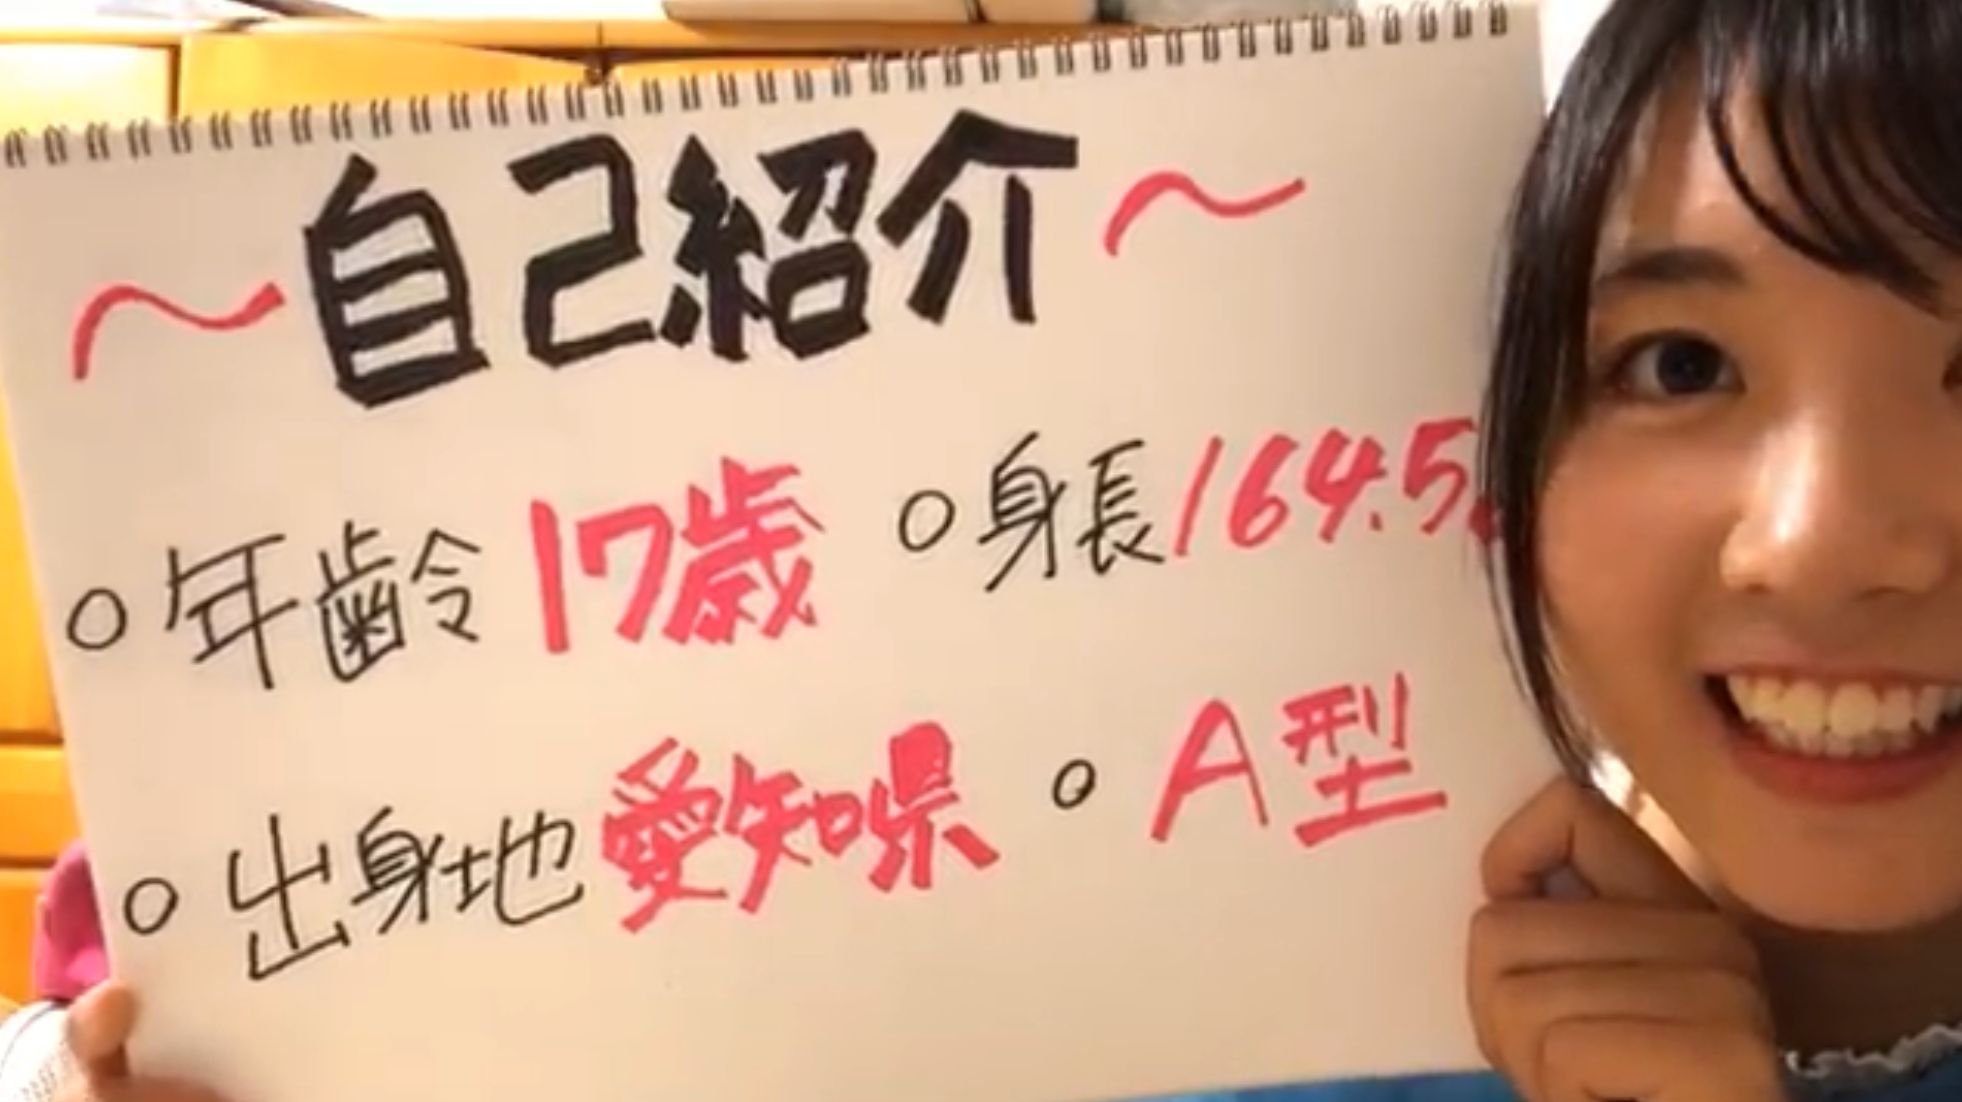 ～自己紹介～
○年齢 17歳 ○身長 164.5
○出身地 愛知県 ○A型